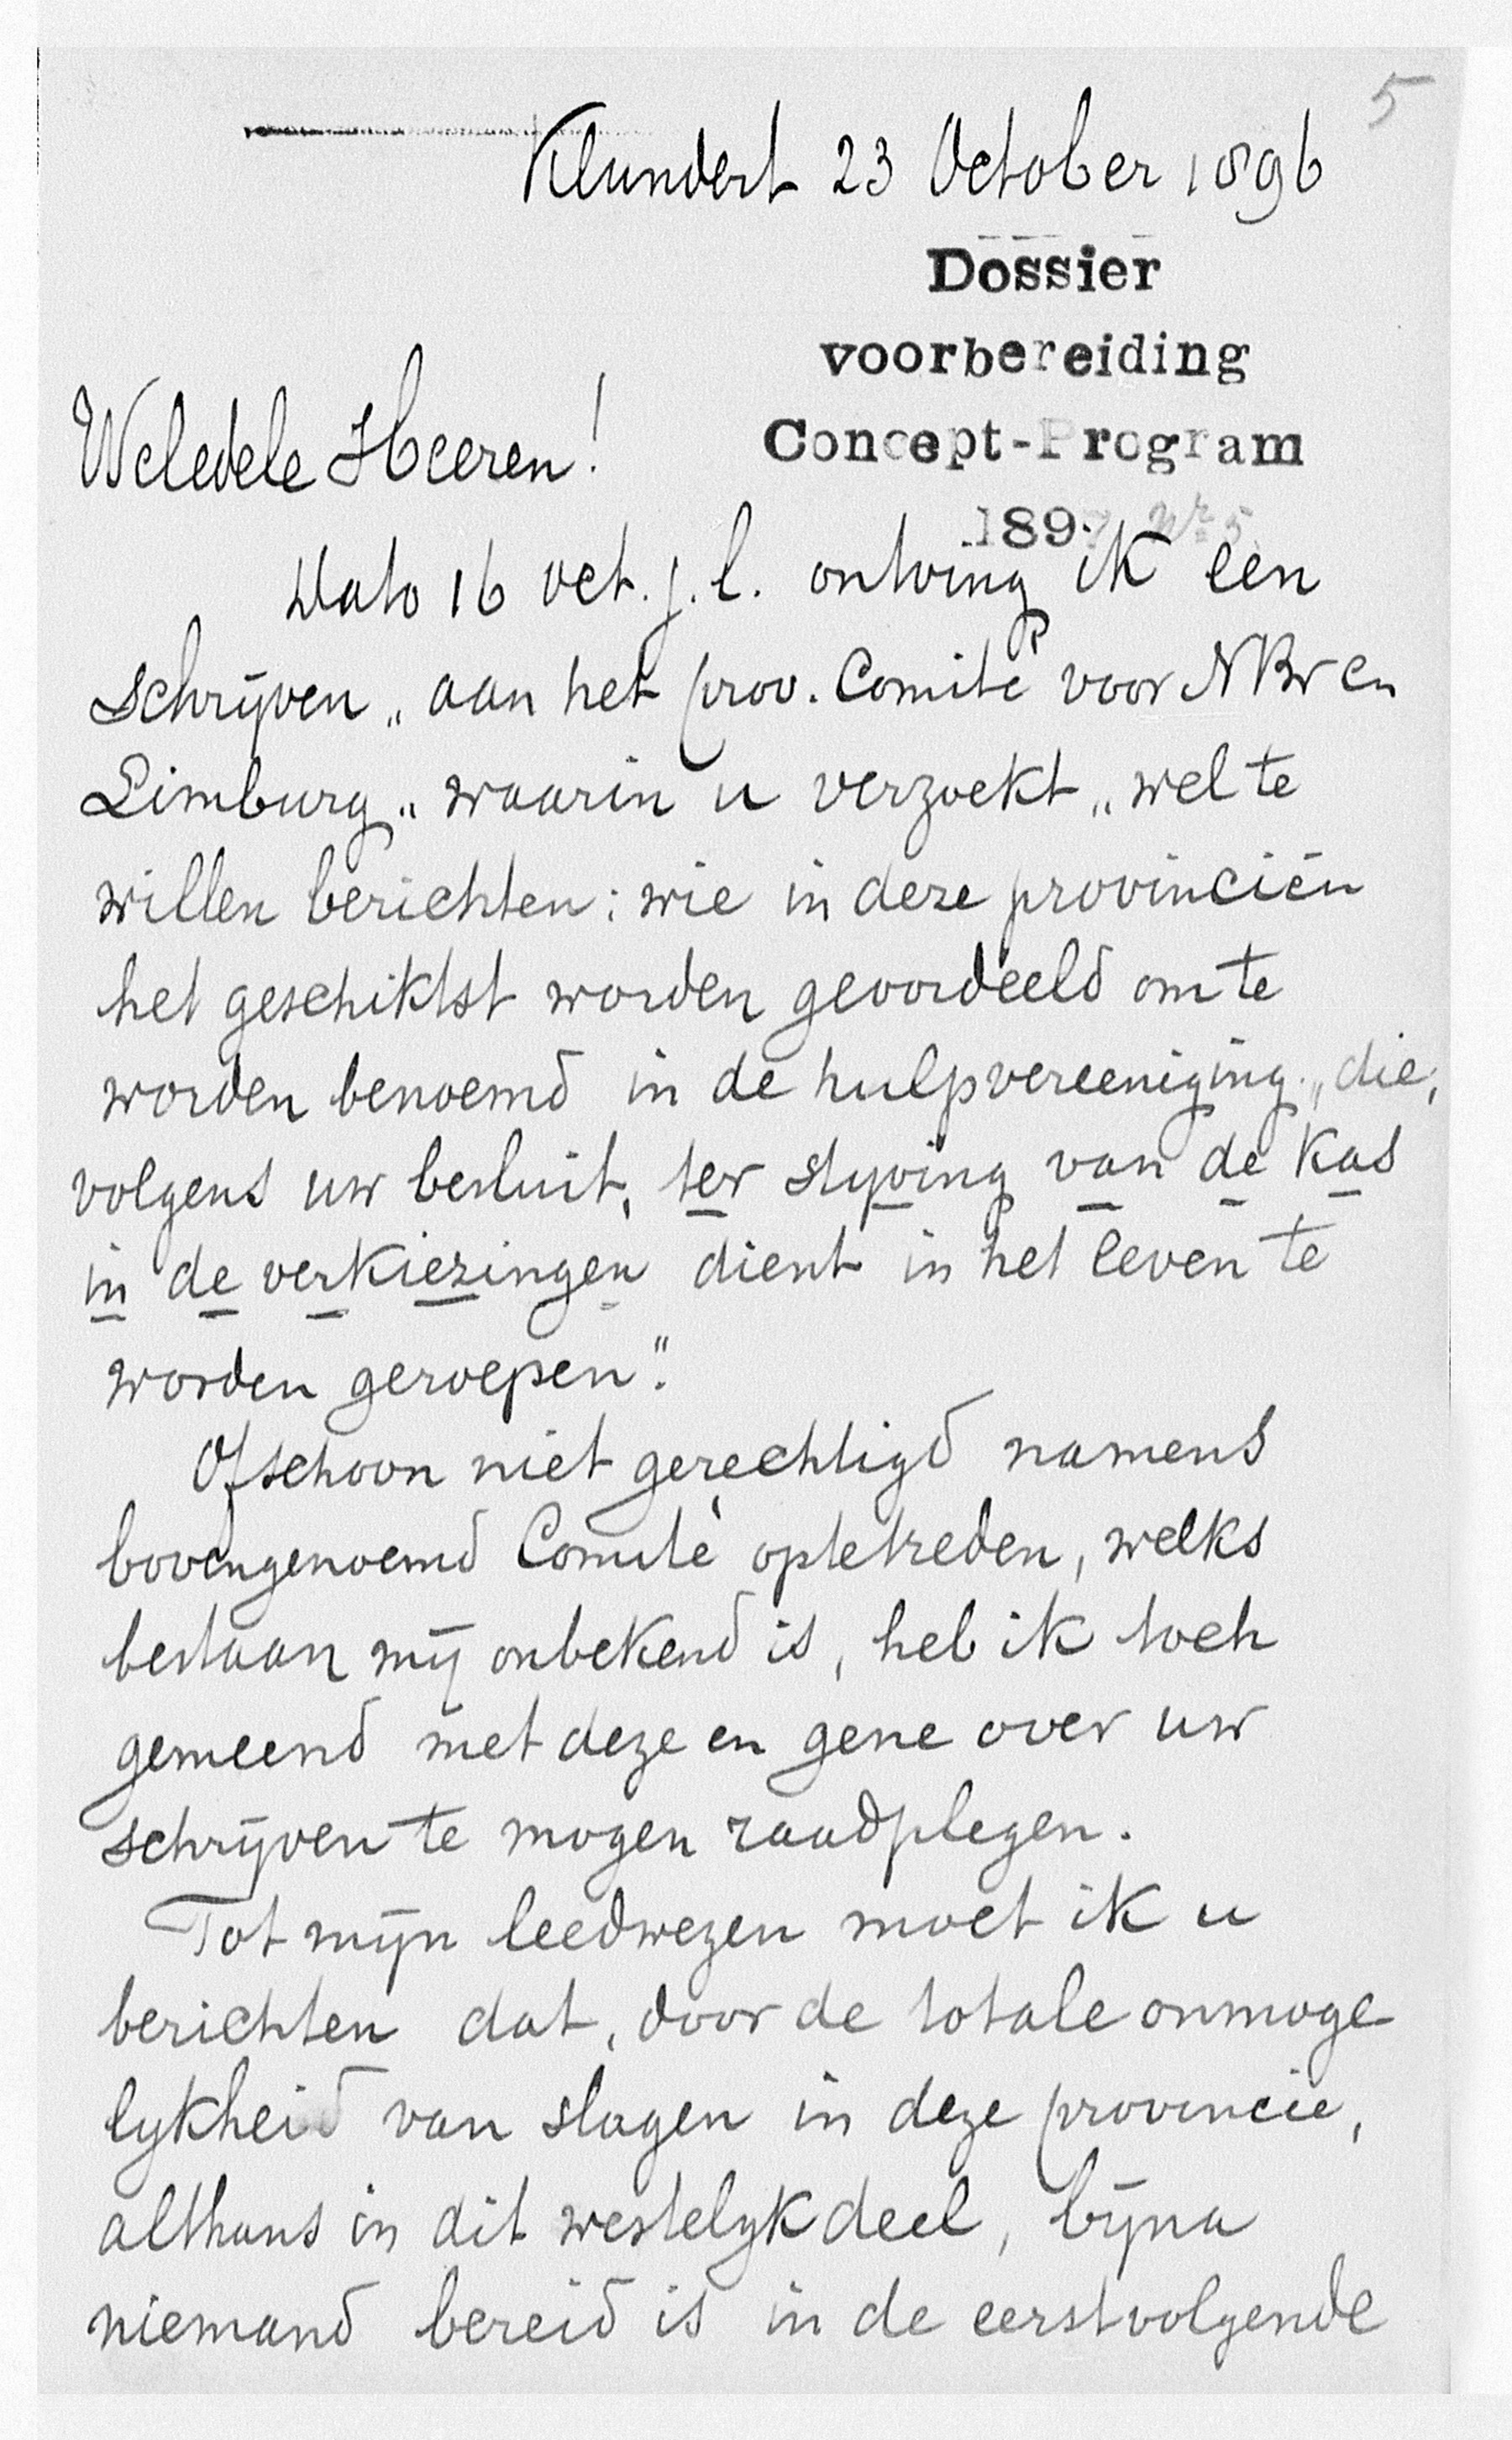 5
Klundert 23 October 1896
Dossier
voorbereiding
Concept-Program
1897 Nr 5
Weledele Heeren!
Dato 16 Oct. j.l. ontving ik een
schrijven „aan het prov. Comité voor NBr en
Limburg„ waarin u verzoekt „wel te
willen berichten: wie in deze provinciën
het geschiktst worden geoordeeld om te
worden benoemd in de hulpvereeniging „die,
volgens uw besluit, ter styving van de kas
in de verkiezingen dient in het leven te
worden geroepen".
Ofschoon niet gerechtigd namens
bovengenoemd Comité optetreden, welks
bestaan mij onbekend is, heb ik toch
gemeend met deze en gene over uw
schrijven te mogen raadplegen.
Tot mijn leedwezen moet ik u
berichten dat, door de totale onmoge
lykheid van slagen in deze provincie,
althans in dit westelyk deel, bijna
niemand bereid is in de eerstvolgende